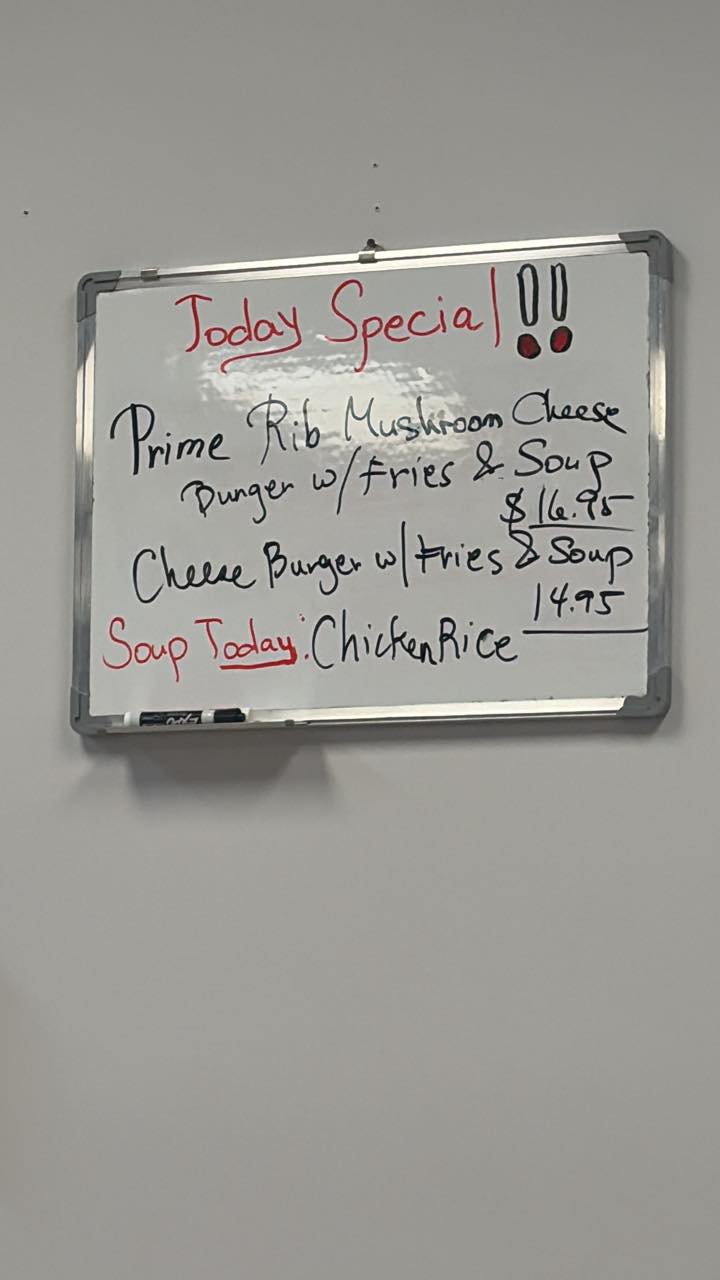 Today Special!!
Prime Rib Mushroom Cheese
Burger w/Fries & Soup
$16.95
Cheese Burger w/Fries & Soup
14.95
Soup Today: Chicken Rice
EXPO